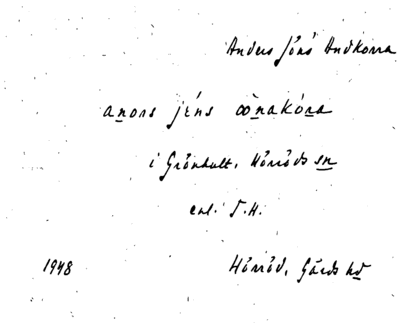 Anders Jöns Andkorra
anors jéns ꝏnakóra
i Grönhult, Hörröds sn
enl. S.H.
1948 Hörröd, Gärds hd